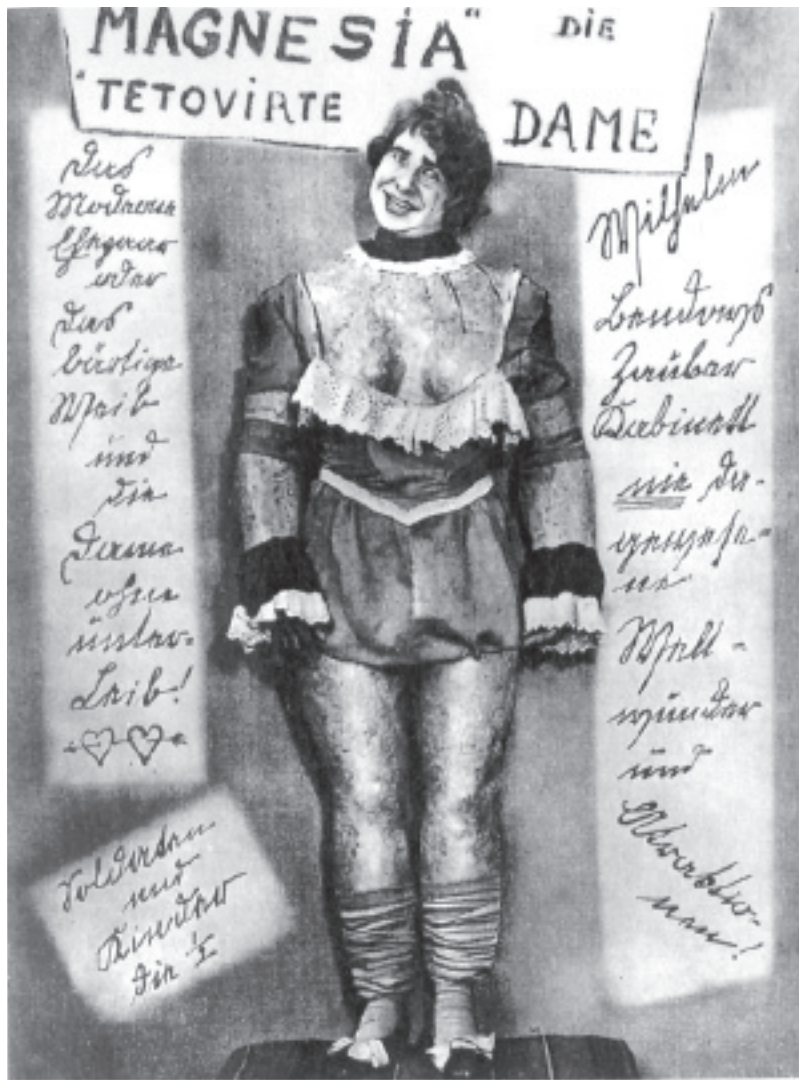 MAGNESIA" DiE
"TETOViRTE DAME
Das
Moderne
Ehepaar
oder
Das
bärtige
Weib
und
die
Dame
ohne
Unter-
Leib!
Soldaten
und
Kinder
die ½
Wilhelm
Bendows
Zauber
Kabinett
nie da-
gewese-
ne
Welt-
wunder
und
Atraktio-
nen!